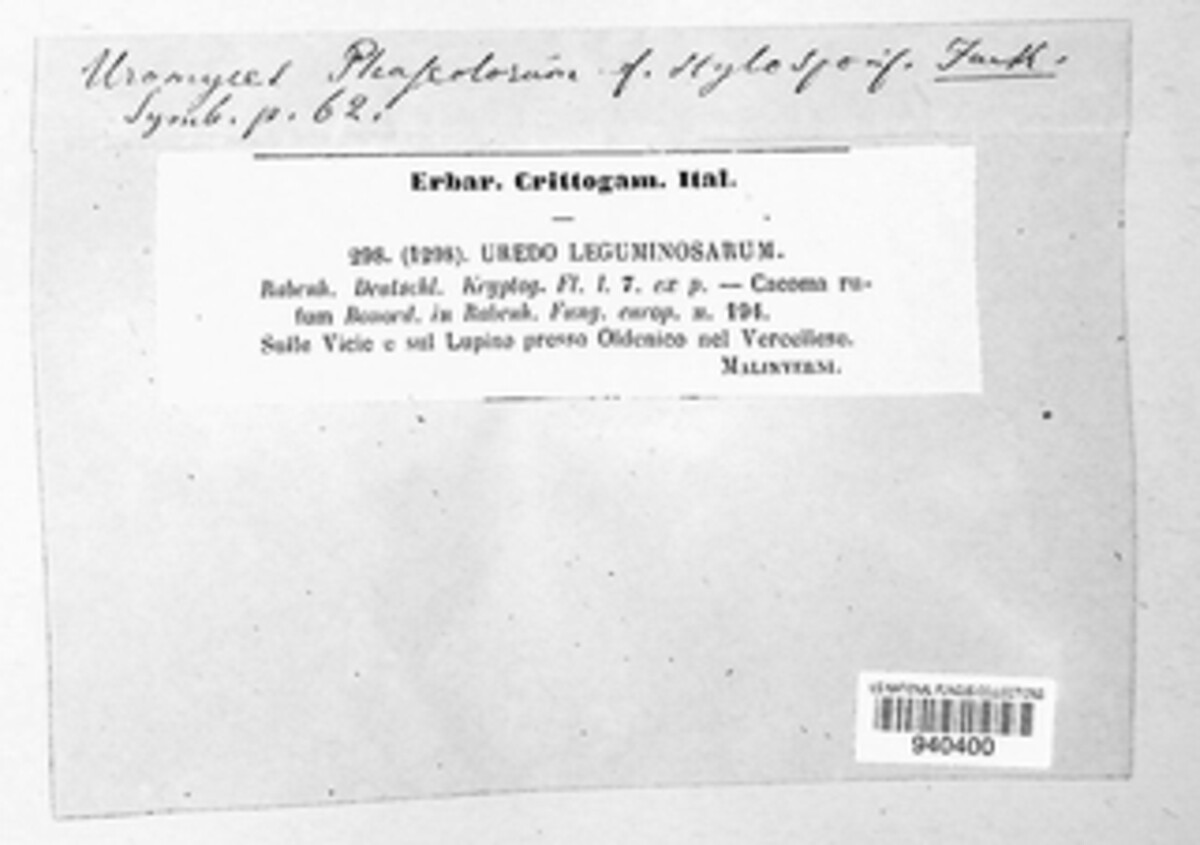 Uromyces Phaseolorum f. stylosporif. Fuck.
Symb. p. 62.
Erbar. Crittogam. Ital.
298. (1298). UREDO LEGUMINOSARUM.
Rabenh. Deutschl. Kryptog. Fl. I. 7. ex p. — Caeoma ru-
fum Bonord. in Rabenh. Fung. europ. n. 194.
Sulle Vicie e sul Lupino presso Oldenico nel Vercellese.
MALINVERNI.
US NATIONAL FUNGUS COLLECTIONS
940400